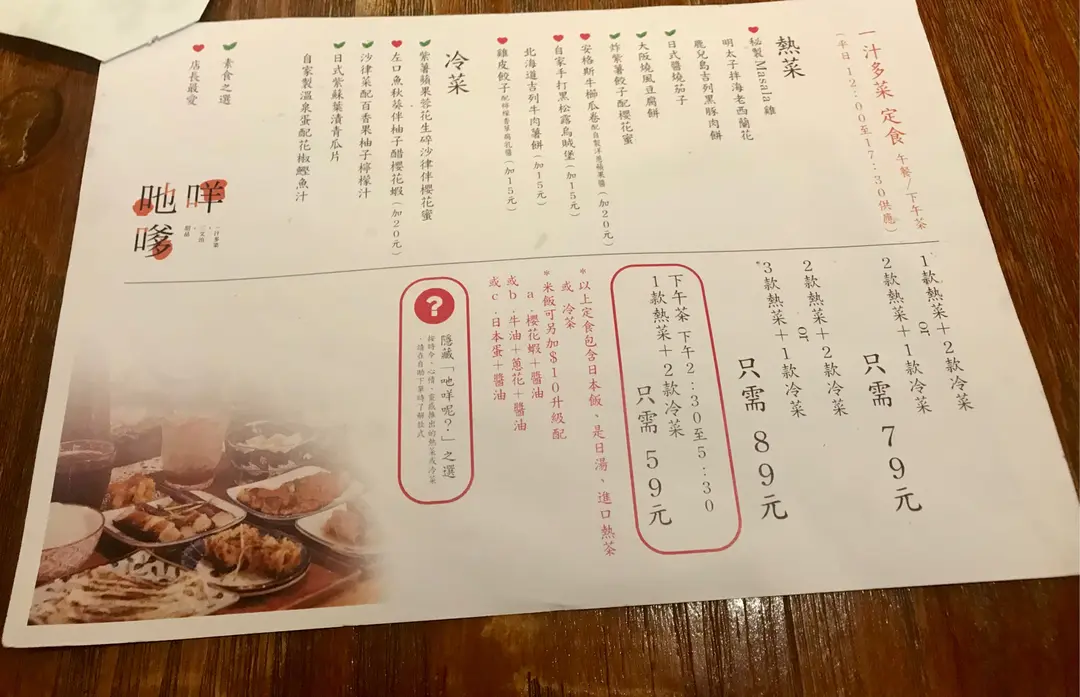 一汁多菜 定食 午餐/下午茶
(平日 12:00至17:30供應)
熱菜
秘製Masala雞
明太子拌海老西蘭花
鹿兒島吉列黑豚肉餅
日式醬燒茄子
大阪燒風豆腐餅
炸紫薯餃子配櫻花蜜
安格斯牛櫛瓜卷配自製洋蔥蘋果醬(加20元)
自家手打黑松露烏賊堡(加15元)
北海道吉列牛肉薯餅(加15元)
雞皮餃子配檸檬香草腐乳醬(加15元)
冷菜
紫薯蘋果蓉花生碎沙律伴櫻花蜜
左口魚秋葵伴柚子醋櫻花蝦(加20元)
沙律菜配百香果柚子檸檬汁
日式紫蘇葉漬青瓜片
自家製温泉蛋配花椒鰹魚汁
素食之選
店長最愛
咩
吔
嗲
1款熱菜+2款冷菜
or
2款熱菜+1款冷菜
只需 79元
2款熱菜+2款冷菜
or
3款熱菜+1款冷菜
只需 89元
下午茶 下午2:30至5:30
1款熱菜+2款冷菜
只需 59元
*以上定食包含日本飯、是日湯、進口熱茶
或 冷茶
*米飯可另加$10升級配
a.櫻花蝦+醬油
或b.牛油+蔥花+醬油
或c.日本蛋+醬油
?
隱藏「吔咩呢?」之選
按時令、心情、靈感推出的熱菜或冷菜
,請在自助下單時了解款式